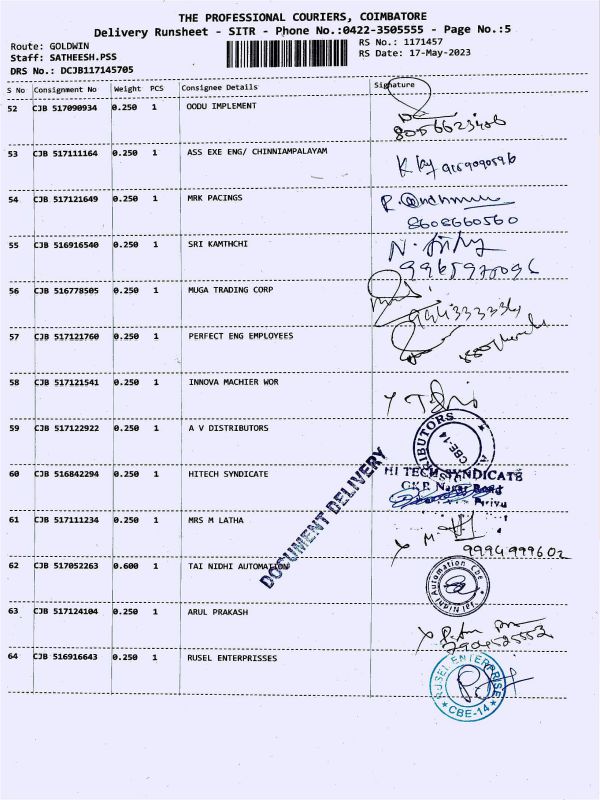 THE PROFESSIONAL COURIERS, COIMBATORE
Delivery Runsheet - SITR - Phone No.:0422-3505555 - Page No.:5
Route: GOLDWIN
RS No.: 1171457
Staff: SATHEESH.PSS
RS Date: 17-May-2023
DRS No.: DCJB117145705
S No Consignment No Weight PCS Consignee Details Signature
52 CJB 517090934 0.250 1 OODU IMPLEMENT
53 CJB 517111164 0.250 1 ASS EXE ENG/ CHINNIAMPALAYAM
54 CJB 517121649 0.250 1 MRK PACINGS
8608660560
55 CJB 516916540 0.250 1 SRI KAMTHCHI
56 CJB 516778505 0.250 1 MUGA TRADING CORP
57 CJB 517121760 0.250 1 PERFECT ENG EMPLOYEES
58 CJB 517121541 0.250 1 INNOVA MACHIER WOR
59 CJB 517122922 0.250 1 A V DISTRIBUTORS
CBE-14
60 CJB 516842294 0.250 1 HITECH SYNDICATE
HI TECH SYNDICATE
DOCUMENT DELIVERY
61 CJB 517111234 0.250 1 MRS M LATHA
9994999602
62 CJB 517052263 0.600 1 TAI NIDHI AUTOMATION
Tai Nidhi Automation Cbe
63 CJB 517124104 0.250 1 ARUL PRAKASH
64 CJB 516916643 0.250 1 RUSEL ENTERPRISSES
RUSEL ENTERPRISE
CBE-14